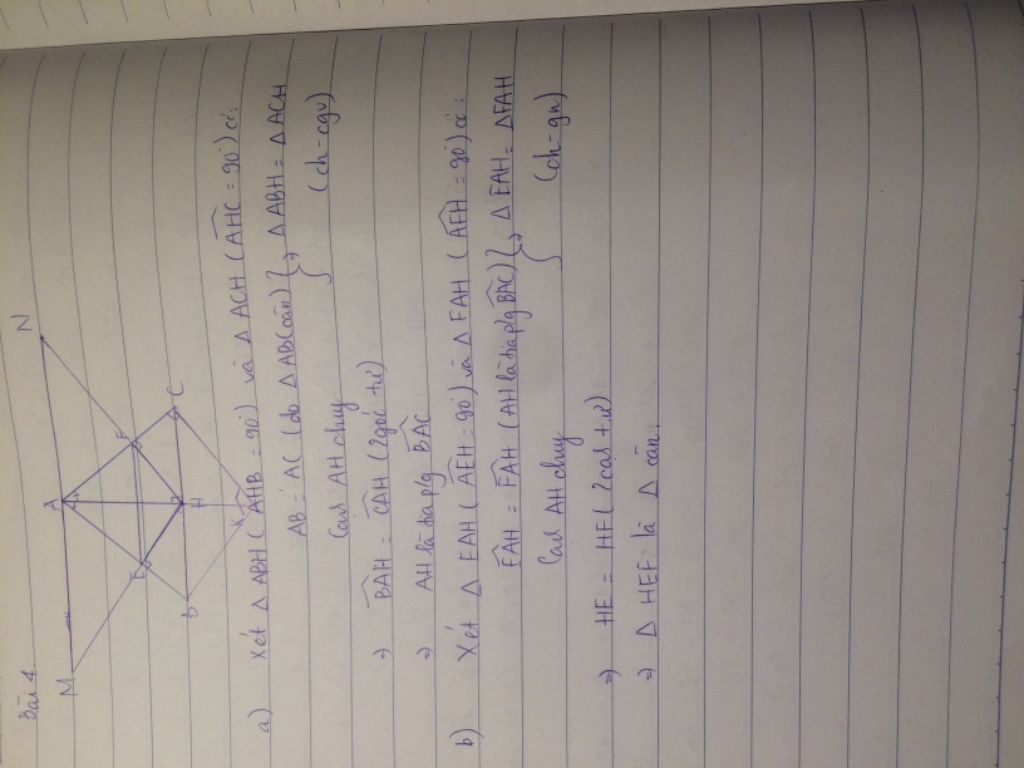 Bài 4
M
A
N
E
F
B
H
C
K
a) Xét Δ ABH (AHB = 90°) và Δ ACH (AHC = 90°) có:
AB = AC (do Δ ABC cân) } ⇒ Δ ABH = Δ ACH
Cạh AH chug (ch - cgv)
⇒ BAH = CAH (2 góc t/ư)
⇒ AH là tia p/g BAC
b) Xét Δ EAH (AEH = 90°) và Δ FAH (AFH = 90°) có:
EAH = FAH (AH là tia p/g BAC) } ⇒ Δ EAH = Δ FAH
Cạh AH chug (ch - gn)
⇒ HE = HF (2 cạh t/ư)
⇒ Δ HEF là Δ cân.